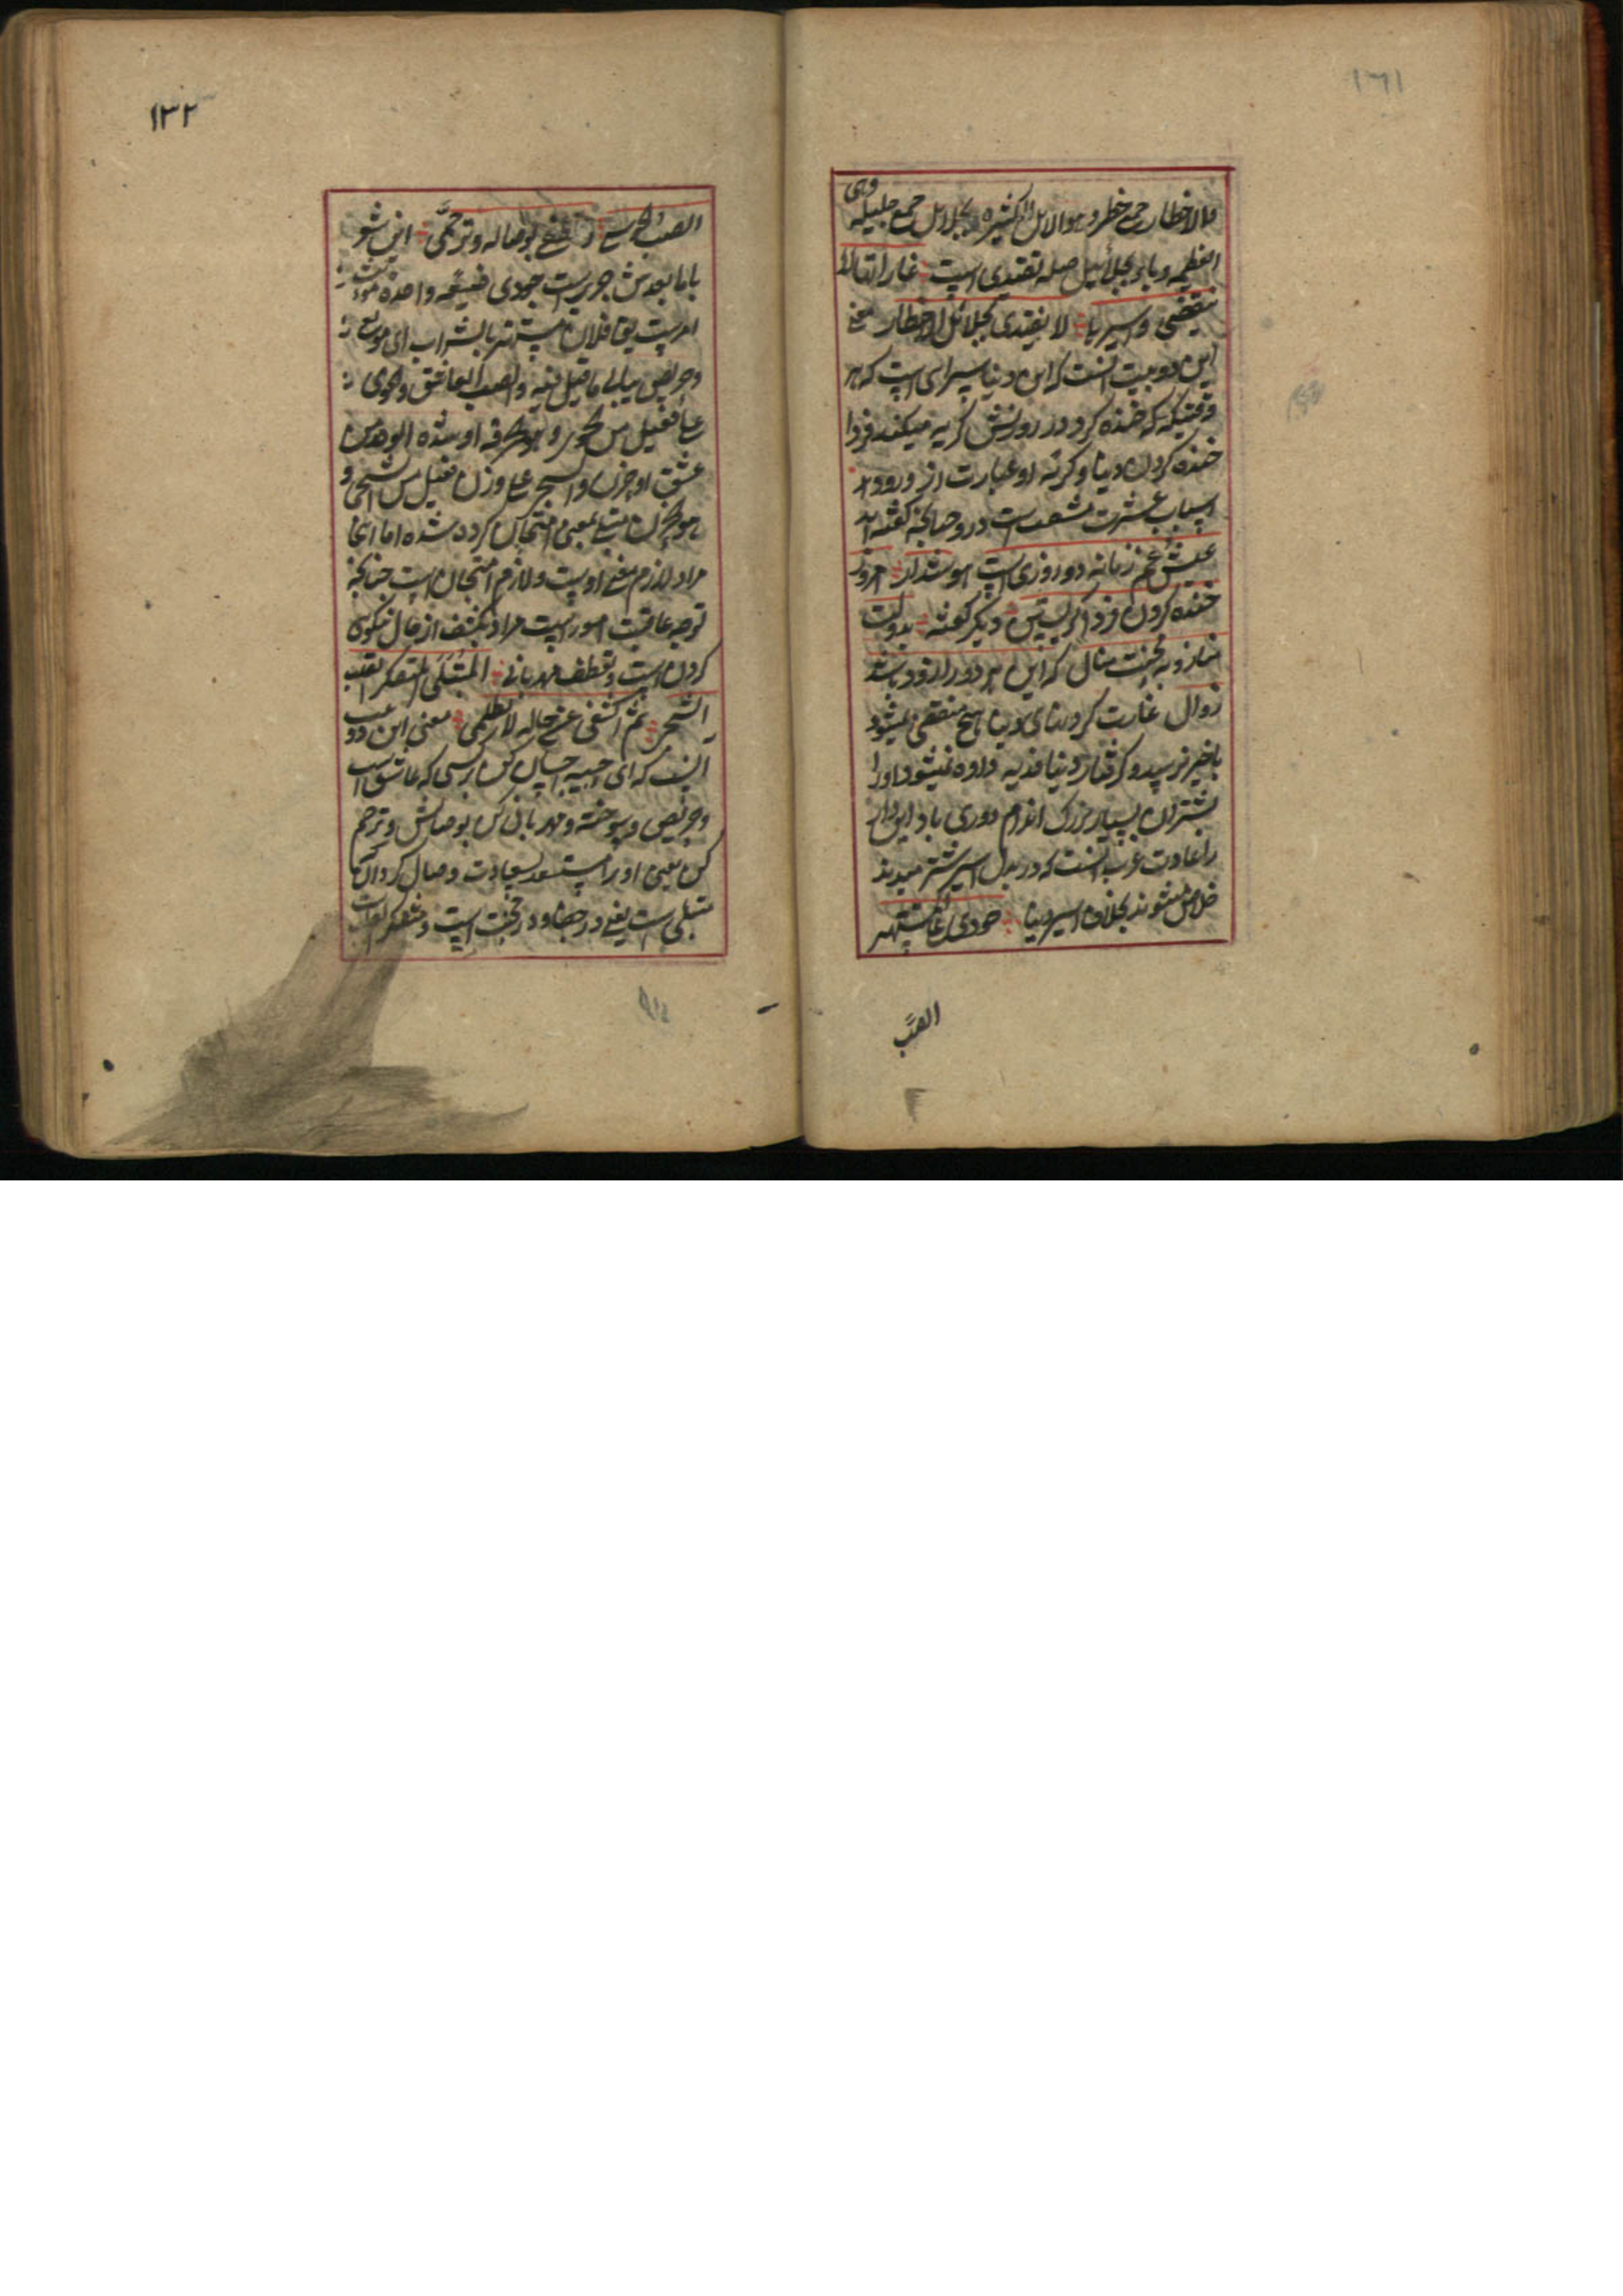 ۱۳۱
فالاخطار جمع خطر و هو الابل الکثیره و بجلایل جمع جلیله وهی
العظیمه و با در بجلائیل صله تفتدی است غاراتها لا
تنقضی و اسیرها لا یفتدی بجلائل الاخطار معنی
این دو بیت آنست که این دنیا سرای است که هر
وقتیکه که خنده کرد در روزش گریه میکند فردا
خنده کردن دنیا و گریه او عبارت از ورود
اسباب عشرت است در و چنانچه گفته اند
عیش و غم زمانه دو روزی است هوشدار امروز
خنده کردن فردا گریستن دیگر گفته بدولت
مناز و به محنت منال که این هر دو را زود باشد
زوال غارت کردنای دنیا هیچ منقضی نمیشود
باخیر نرسید و گرفتار دنیا فدیه داده نمیشود او را
بشتران بسیار بزرگ اندام دوری باد این دار
را عادت عرب آنست که در بدل اسیر شتر میدهند
خلاص میشوند بخلاف اسیر دنیا جودی علی المستهتر
الصبّ
۱۳۲
الصب الجوی و تعطفی بوصاله و ترحمی این شعر
با مابعدش حریریست جودی صیغه واحده مؤنث
امر یست یق فلان مستهتر بالشراب ای مولع
و حریص یبالی ما قیل فیه و الصب العاشق و الجوی
علی فعیل من الجوی و هو حرقه او شده الوجد من
عشق او حزن و الشجی علی وزن فعیل من الشجی و
هو الحزن مبتلی بمعنی امتحان کرده شده اما اینجا
مراد لازم معنی اوست و لازم امتحان است چنانچه
توجه عاقبت امور است مراد تکشف از حال نیکوئی
کردن است و تعطف مهربانی المبتلی المتفکر القلب
الشجی ثم اکشفی عن حاله لا تظلمی معنی این دو بیت
آنست که ای حبیبه احسان کن بر کسی که عاشق است
و حریص و سوخته و مهربانی کن بوصالش و ترحم
کن یعنی او را مستسعد بسعادت وصال گردان
مبتلی است یعنی در جفا و در محنت است و متفکر القلب است